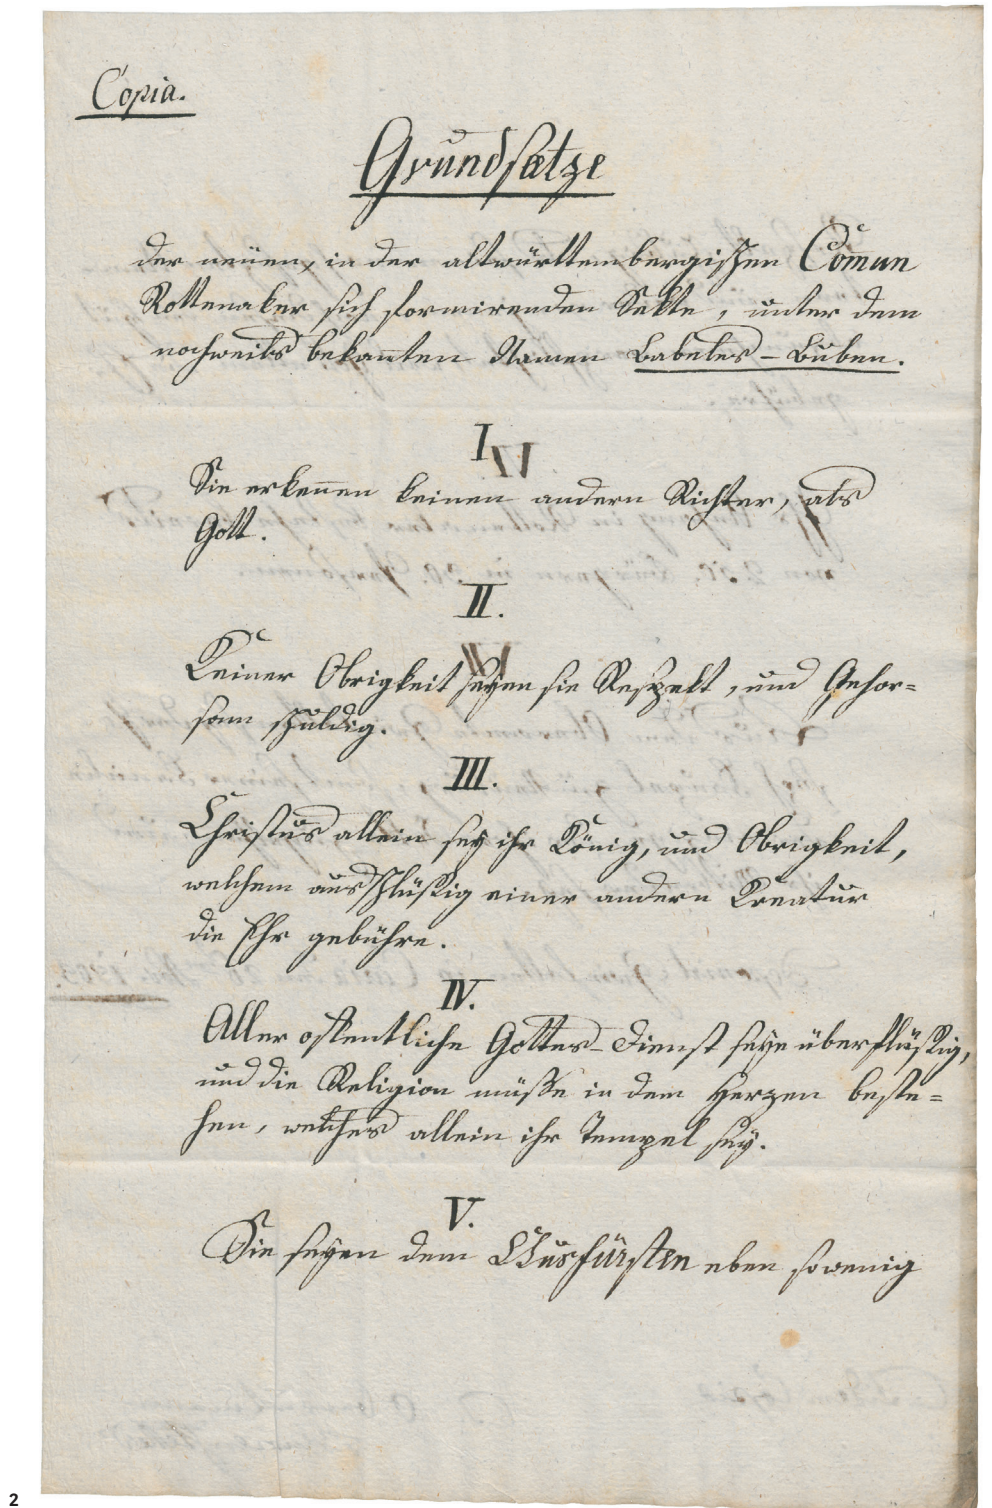 Copia.
Grundsätze
der neüen, in der altwürttembergischen Comun
Rottenaker sich formirenden Sekte, unter dem
nochweils bekañten Namen Babeles-Buben.
I
Sie erkeñen keinen andern Richter, als
Gott.
II.
Keiner Obrigkeit seyen sie Respekt, und Gehor=
sam schuldig.
III.
Christus allein sey ihr König, und Obrigkeit,
welchem ausschlüßig einer andern Kreatur
die Ehr gebühre.
IV.
Aller offentliche Gottes-Dienst seye überflüßig,
und die Religion müsse in dem Herzen beste=
hen, welches allein ihr Tempel sey.
V.
Sie seyen dem Churfürsten eben so wenig
2